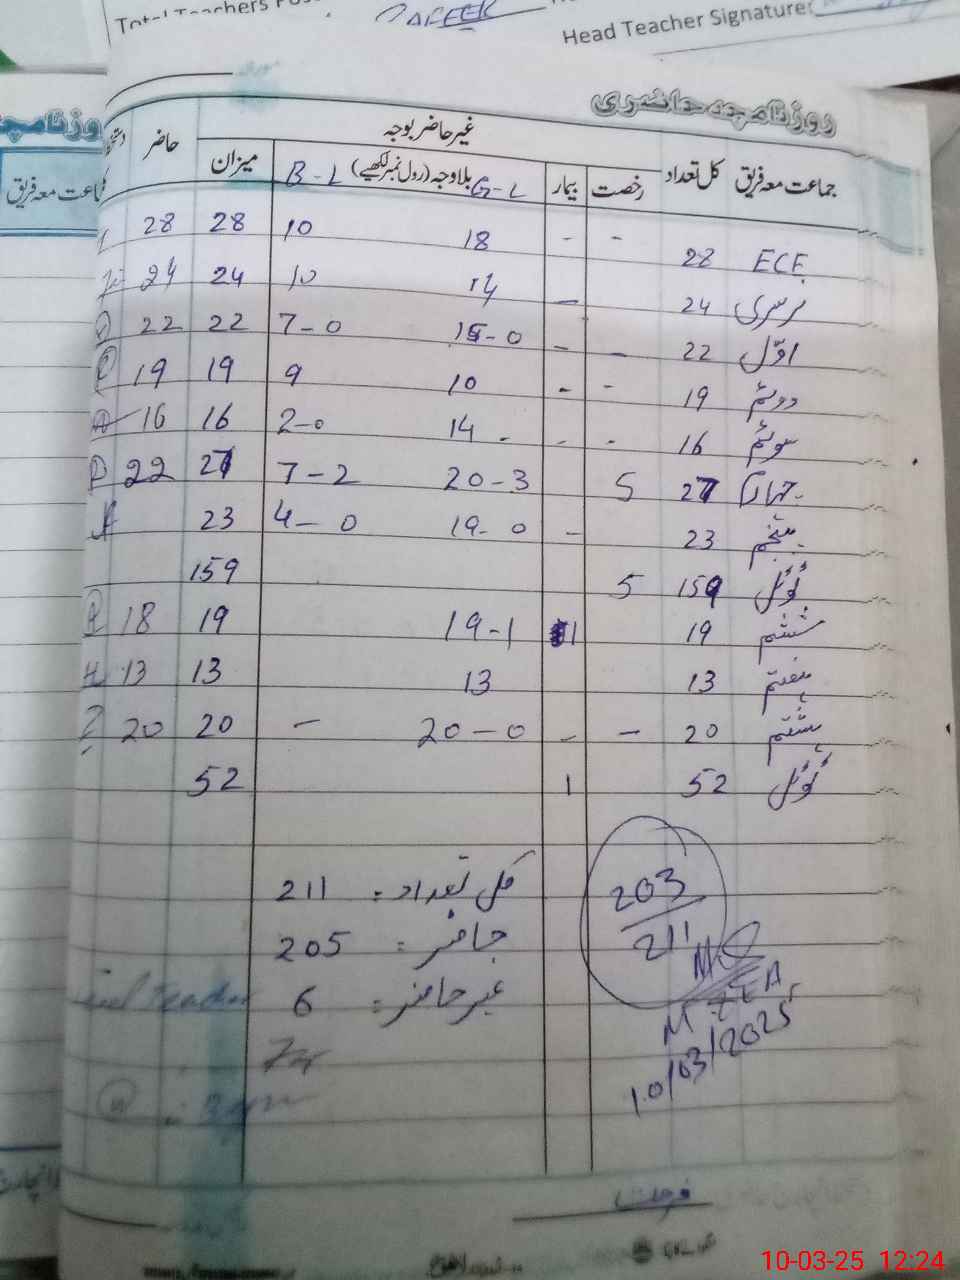 Total Teachers
CAREER
Head Teacher Signature:
روزنامچہ حاضری
جماعت معہ فریق کل تعداد رخصت بیمار غیر حاضر بوجہ بلاوجہ (رول نمبر لکھیے) میزان حاضر
G-L B-L
ECE 28 - - 18 10 28 28
نرسری 24 _ 14 10 24 24
اوّل 22 - - 15-0 7-0 22 22
دوئم 19 - - 10 9 19 19
سوئم 16 - - 14 2-0 16 16
چہارم 27 5 20-3 7-2 27 22
پنجم 23 - 19-0 4-0 23
ٹوٹل 159 5 159
ششم 19 1 19-1 19 18
ہفتم 13 13 13 13
ہشتم 20 - - 20-0 - 20 20
ٹوٹل 52 1 52
کل تعداد : 211
حاضر : 205
غیر حاضر : 6
203
211
MEA
10/03/2025
Teacher
جماعت معہ فریق
10-03-25 12:24